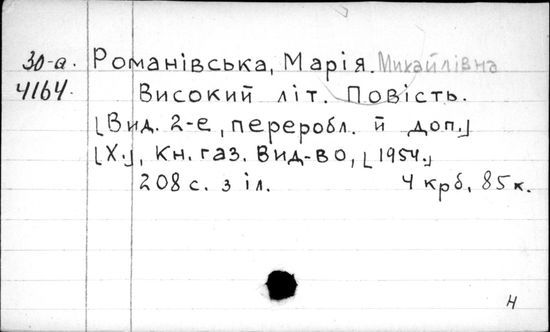 30-а. Романівська, Марія. Михайлівна
4164. Високий літ. Повість.
[Вид. 2-е, переробл. й доп.]
[Х.], Кн. газ. Вид-во, [1954.]
208 с. з іл. 4 крб. 85 к.
Н